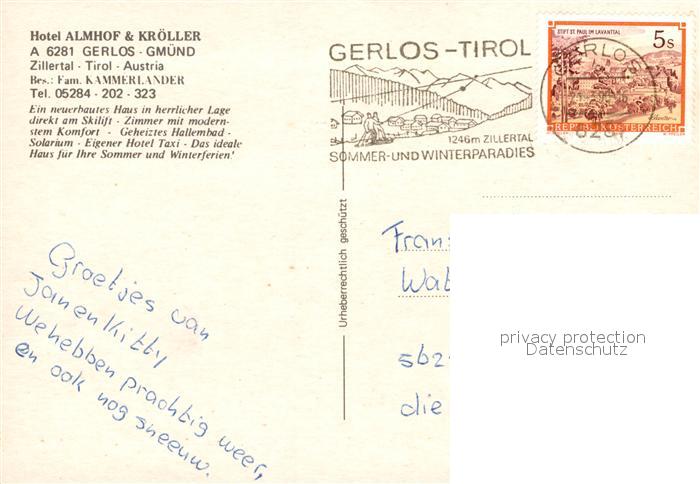 Hotel ALMHOF & KRÖLLER
A 6281 GERLOS · GMÜND
Zillertal · Tirol · Austria
Bes.: Fam. KAMMERLANDER
Tel. 05284 · 202 · 323
Ein neuerbautes Haus in herrlicher Lage
direkt am Skilift · Zimmer mit modern-
stem Komfort · Geheiztes Hallembad ·
Solarium · Eigener Hotel Taxi · Das ideale
Haus für Ihre Sommer und Winterferien!
GERLOS-TIROL
1246m ZILLERTAL
SOMMER-UND WINTERPARADIES
STIFT ST. PAUL IM LAVANTTAL
5s
REPUBLIK ÖSTERREICH
GERLOS
Urheberrechtlich geschützt
Groetjes van
Jan en Kitty
We hebben prachtig weer,
en ook nog sneeuw.
Fran
Wat
562
die
privacy protection
Datenschutz